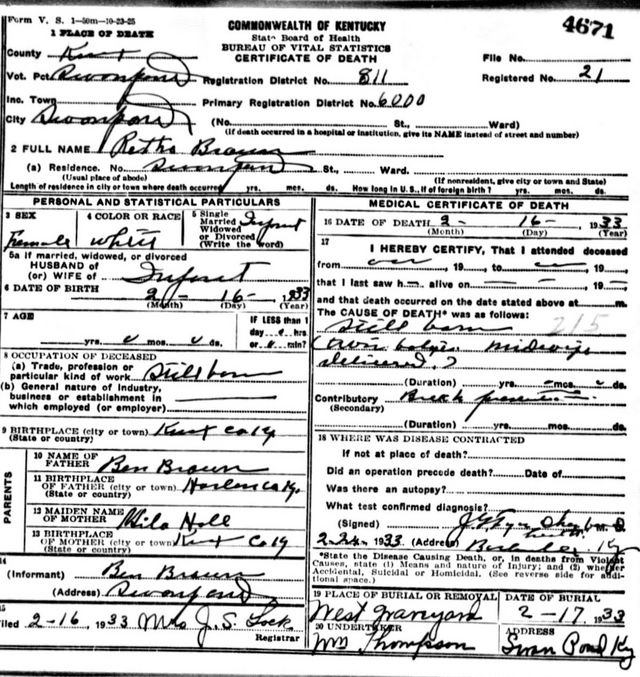 Form V. S. 1-50m-10-23-25
4671
1 PLACE OF DEATH
COMMONWEALTH OF KENTUCKY
State Board of Health
BUREAU OF VITAL STATISTICS
CERTIFICATE OF DEATH
County Knox
File No.
Vot. Pct Swanpond
Registration District No. 811
Registered No. 21
Inc. Town
Primary Registration District No. 6000
City Swanpond
(No. St., Ward)
(If death occurred in a hospital or institution, give its NAME instead of street and number)
2 FULL NAME Retha Brown
(a) Residence. No. St., Ward.
(Usual place of abode) (If nonresident, give city or town and State)
Length of residence in city or town where death occurred yrs. mos. ds. How long in U. S., if of foreign birth? yrs. mos. ds.
PERSONAL AND STATISTICAL PARTICULARS
3 SEX Female
4 COLOR OR RACE White
5 Single Married Widowed or Divorced (Write the word) Infant
5a If married, widowed, or divorced
HUSBAND of
(or) WIFE of Infant
6 DATE OF BIRTH 2- 16- 1933
(Month) (Day) (Year)
7 AGE
yrs. mos. ds.
IF LESS than 1
day hrs
or min?
8 OCCUPATION OF DECEASED
(a) Trade, profession or
particular kind of work Stillborn
(b) General nature of industry,
business or establishment in
which employed (or employer)
9 BIRTHPLACE (city or town) Knox Co Ky
(State or country)
PARENTS
10 NAME OF
FATHER Ben Brown
11 BIRTHPLACE
OF FATHER (city or town) Harlan Co Ky.
(State or country)
12 MAIDEN NAME
OF MOTHER
13 BIRTHPLACE
OF MOTHER (city or town) Knox Co Ky
(State or country)
14
(Informant) Ben Brown
(Address) Swanpond
15
Filed 2-16, 1933 Mrs J. S. Lock
Registrar
MEDICAL CERTIFICATE OF DEATH
16 DATE OF DEATH 2- 16- 1933
(Month) (Day) (Year)
17
I HEREBY CERTIFY, That I attended deceased
from , 19 to , 19
that I last saw h alive on , 19
and that death occurred on the date stated above at m.
The CAUSE OF DEATH* was as follows:
Still born 215
midwife
delivered.
(Duration) yrs. mos. ds.
Contributory
(Secondary)
(Duration) yrs. mos. ds.
18 WHERE WAS DISEASE CONTRACTED
If not at place of death?
Did an operation precede death? Date of
Was there an autopsy?
What test confirmed diagnosis?
(Signed) M. D.
1933 (Address) Ky
*State the Disease Causing Death, or, in deaths from Violent
Causes, state (1) Means and nature of Injury; and (2) whether
Accidental, Suicidal or Homicidal. (See reverse side for addi-
tional space.)
19 PLACE OF BURIAL OR REMOVAL
West graveyard
DATE OF BURIAL
2-17. 1933
20 UNDERTAKER
Wm Thompson
ADDRESS
Swan Pond Ky